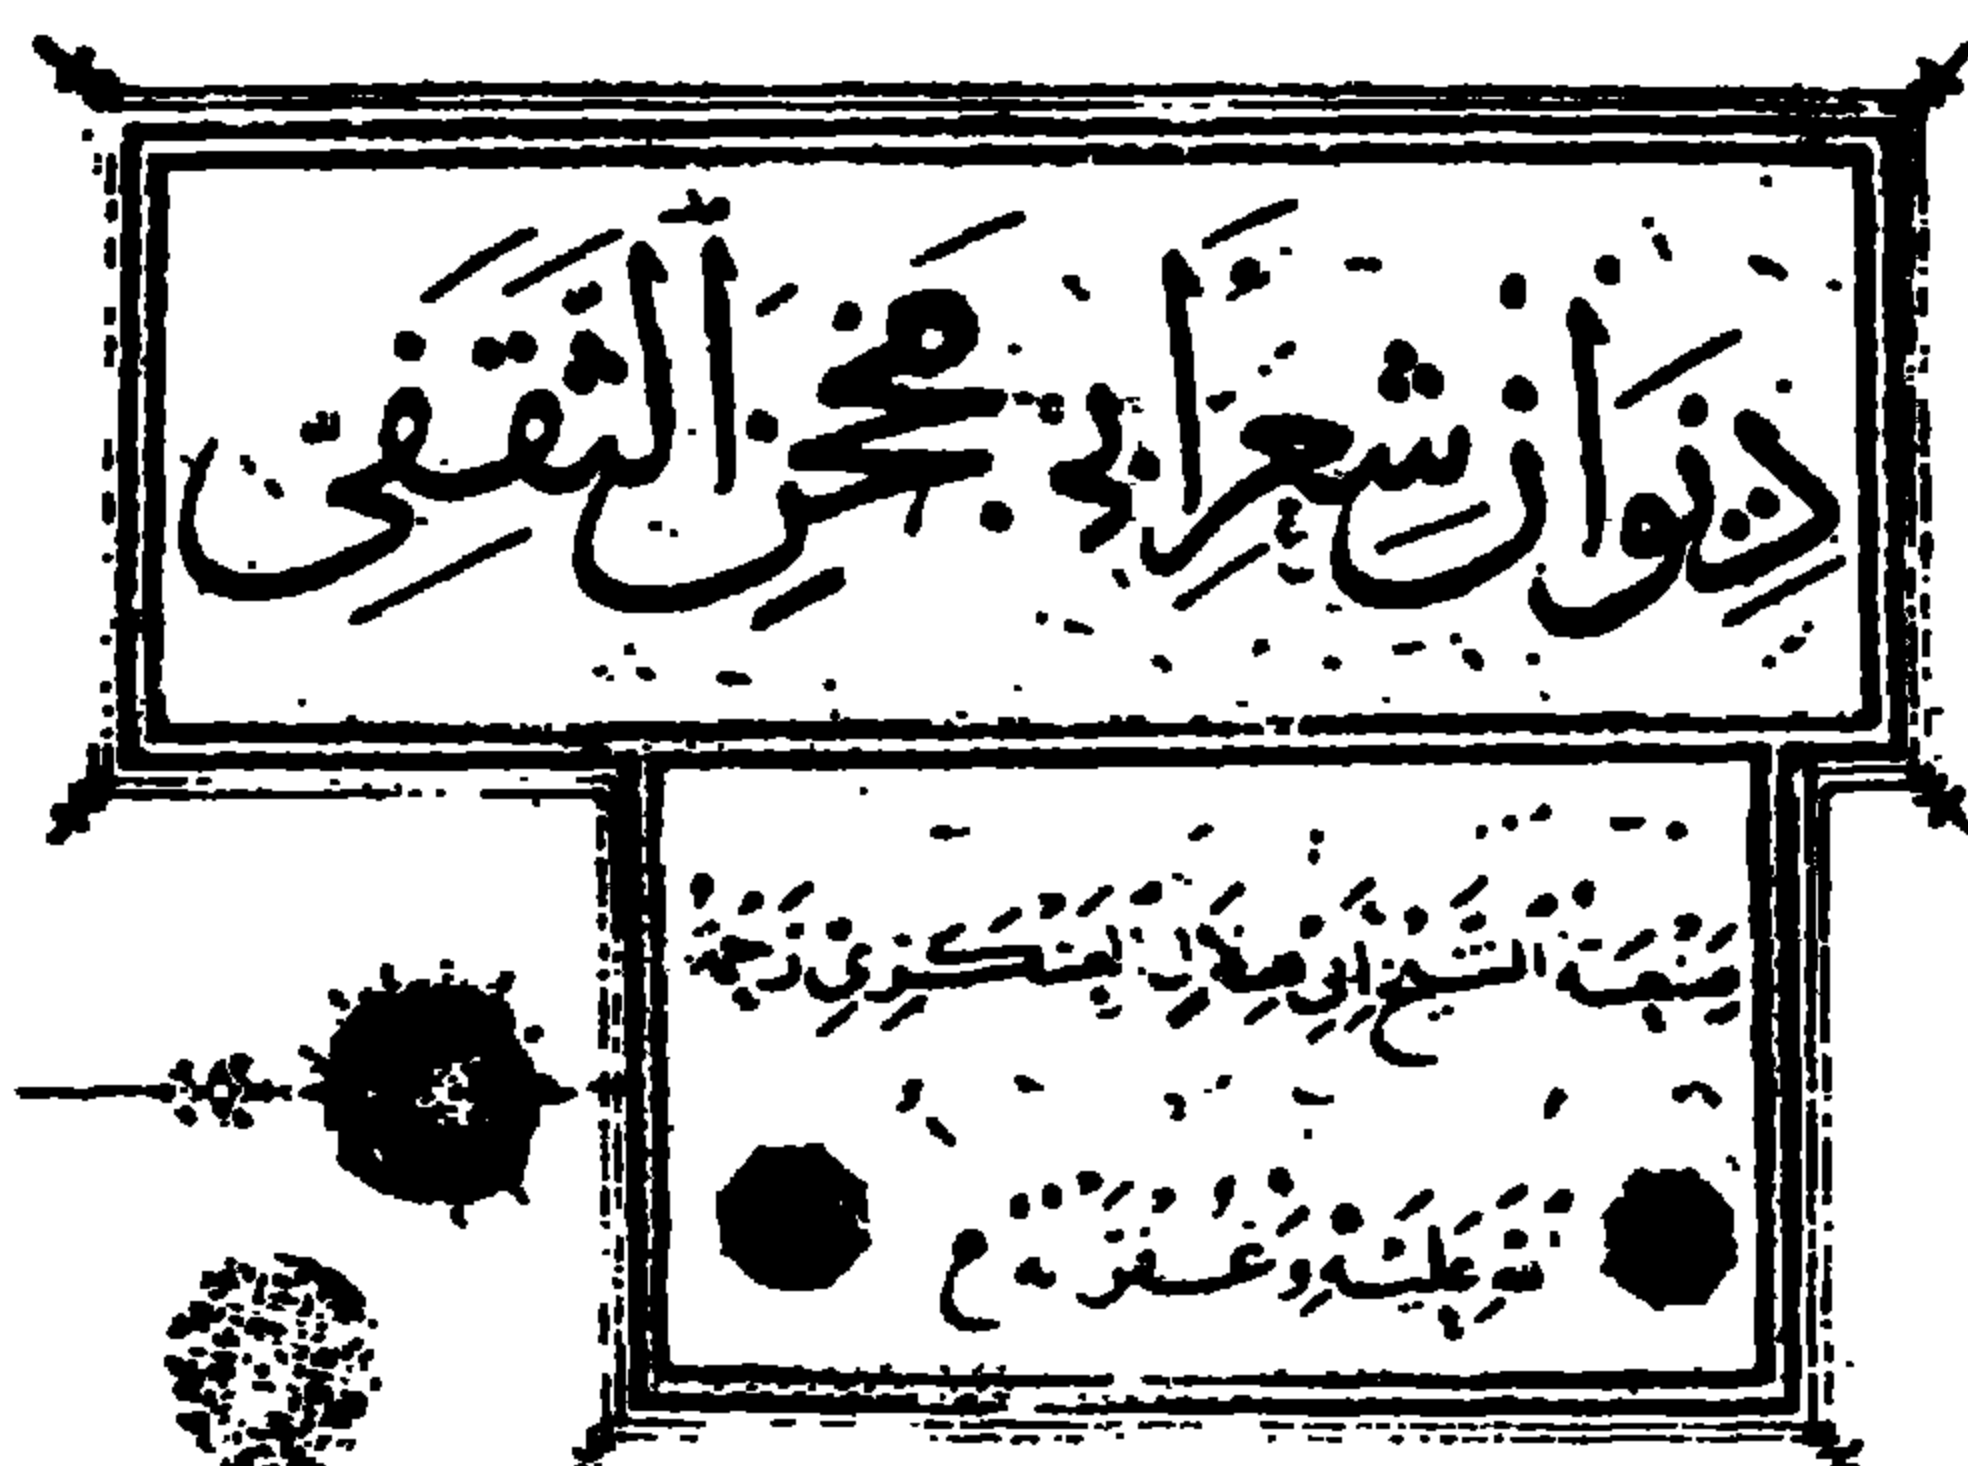 ديوان شعر ابي محجن الثقفي
صنعة الشيخ ابي هلال العسكري رحمة
الله عليه وغفر له